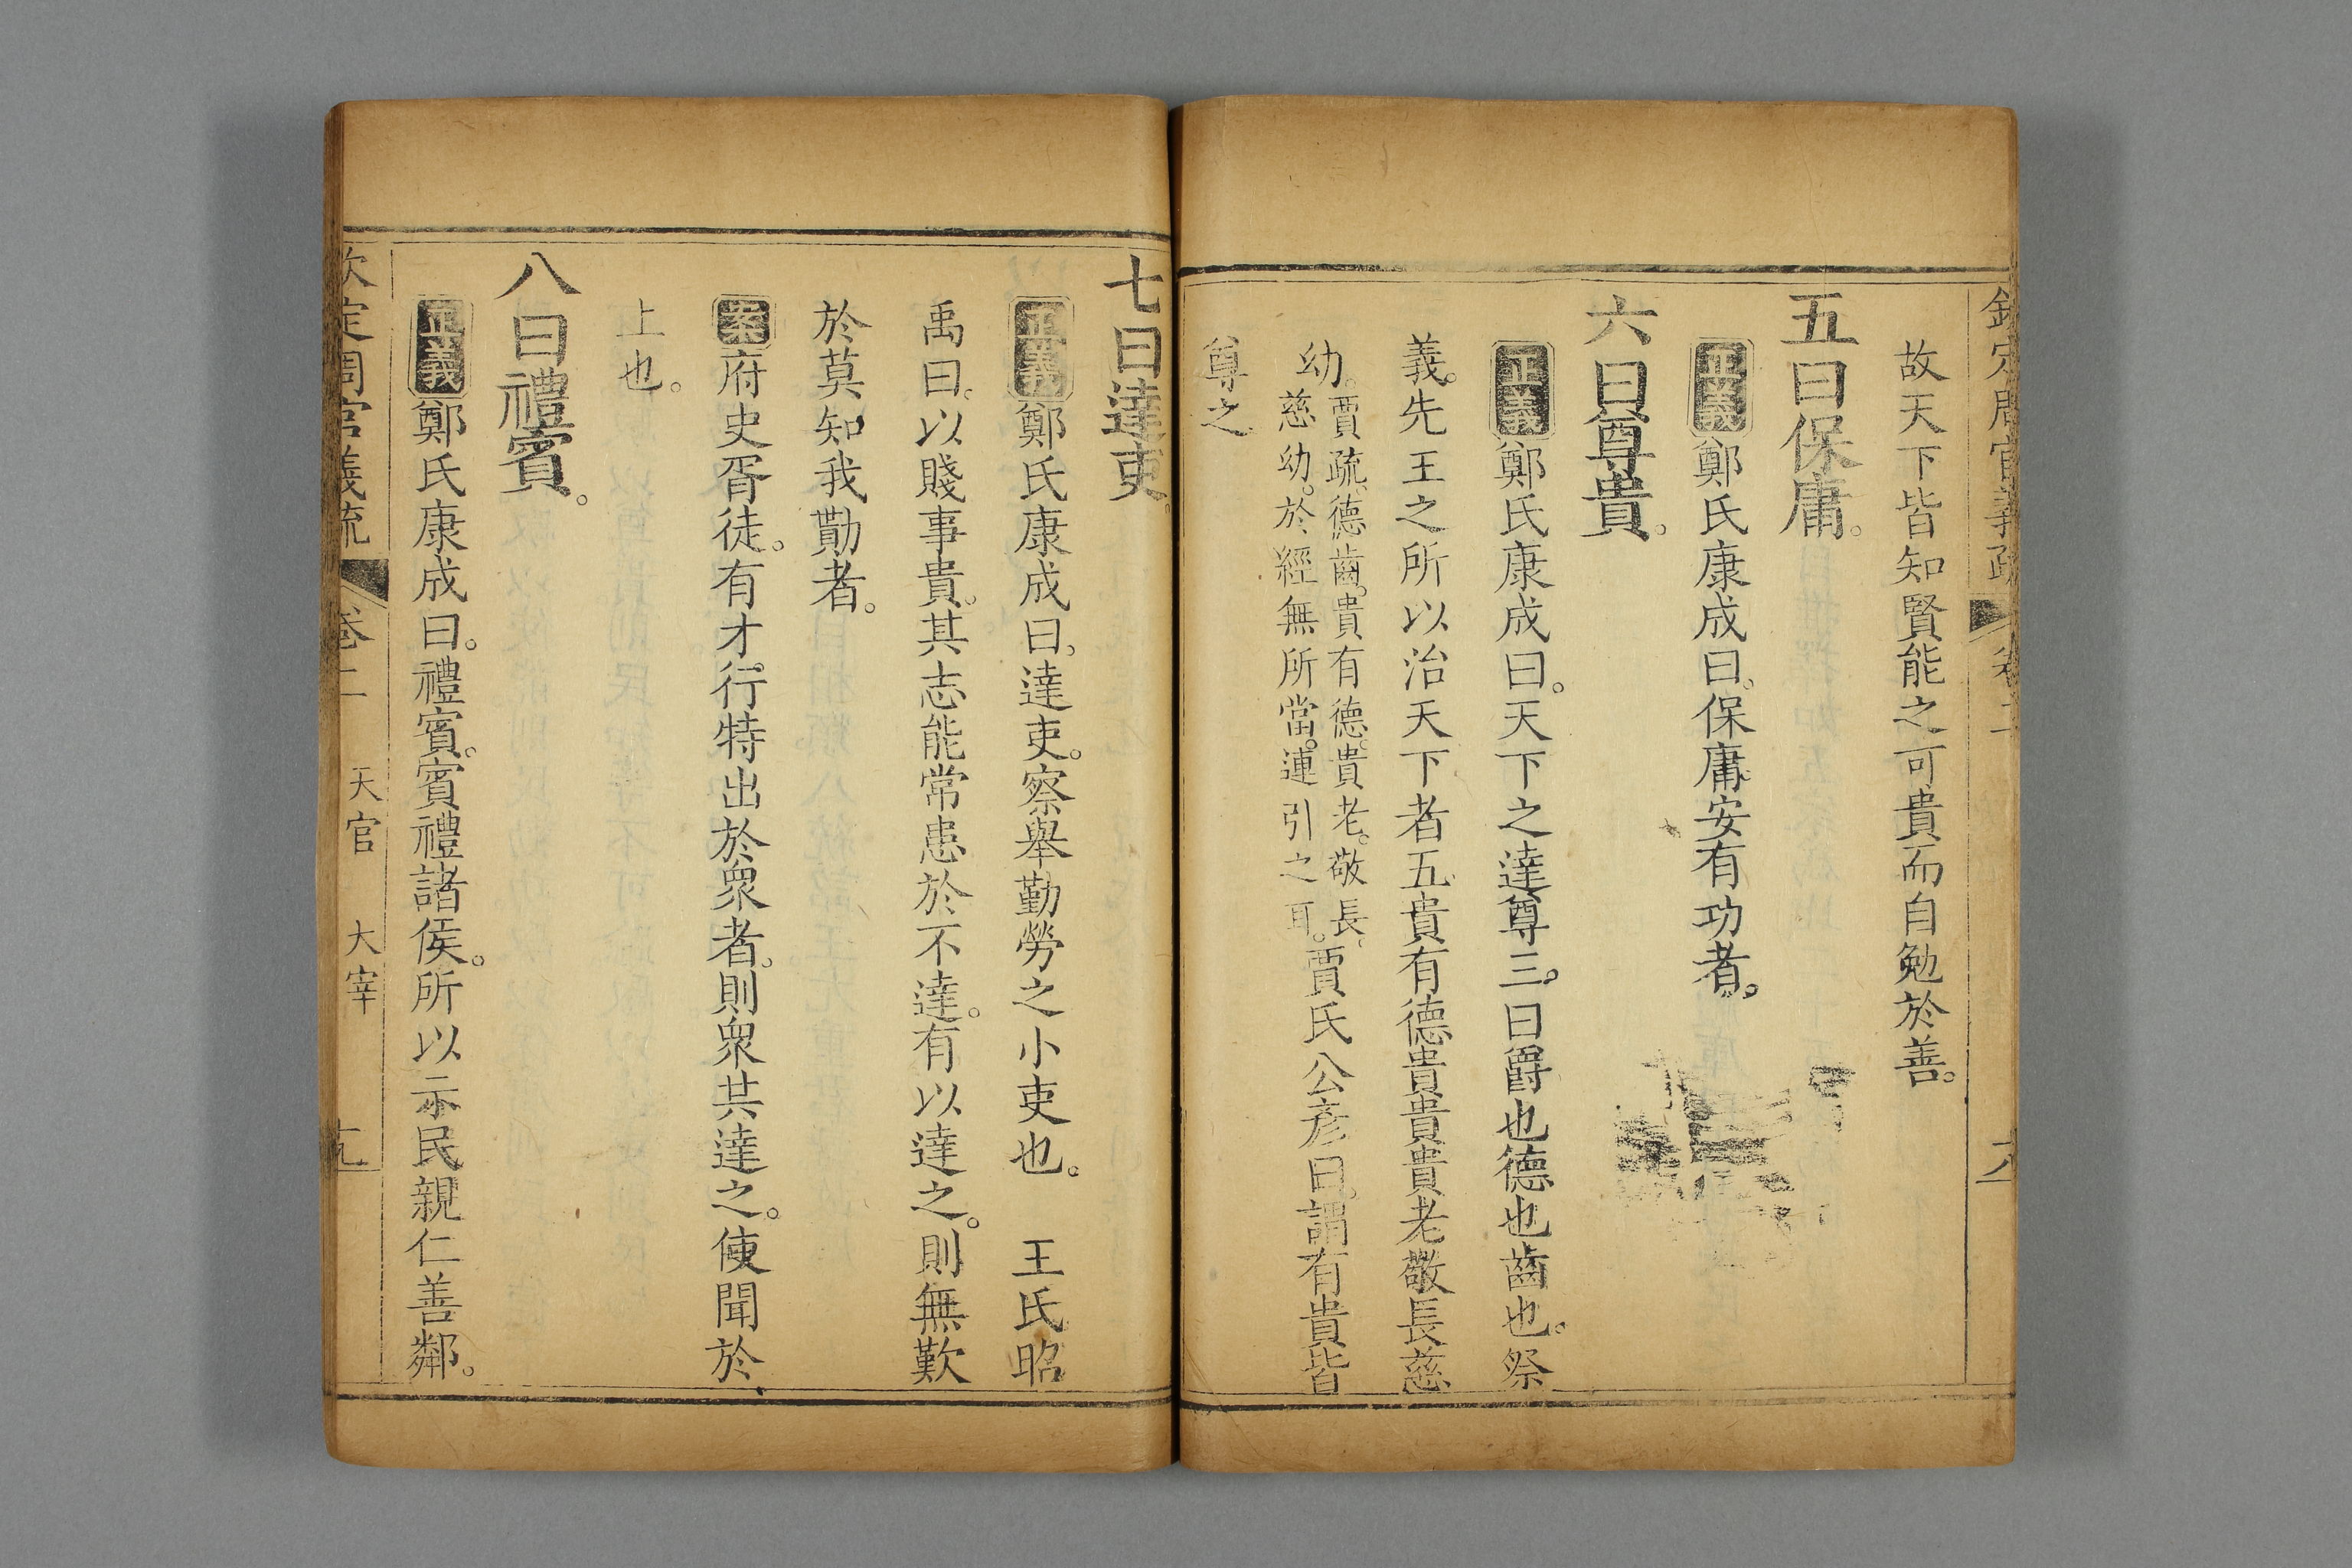 欽定周官義疏 卷二
故天下皆知賢能之可貴而自勉於善。
五曰保庸。
正義鄭氏康成曰。保庸。安有功者。
六曰尊貴。
正義鄭氏康成曰。天下之達尊三。曰爵也德也齒也。祭
義。先王之所以治天下者五。貴有德貴貴貴老敬長慈
幼。賈疏。德齒。貴有德。貴老。敬長、
慈幼。於經無所當。連引之耳。
賈氏公彥曰。謂有貴皆
尊之
七曰達吏。
正義鄭氏康成曰。達吏。察舉勤勞之小吏也。 王氏昭
禹曰。以賤事貴。其志能常患於不達。有以達之。則無歎
於莫知我勩者。
案府史胥徒。有才行特出於衆者。則衆共達之。使聞於
上也。
八曰禮賓。
正義鄭氏康成曰。禮賓。賓禮諸侯。所以示民親仁善鄰。
欽定周官義疏 卷二 天官 大宰